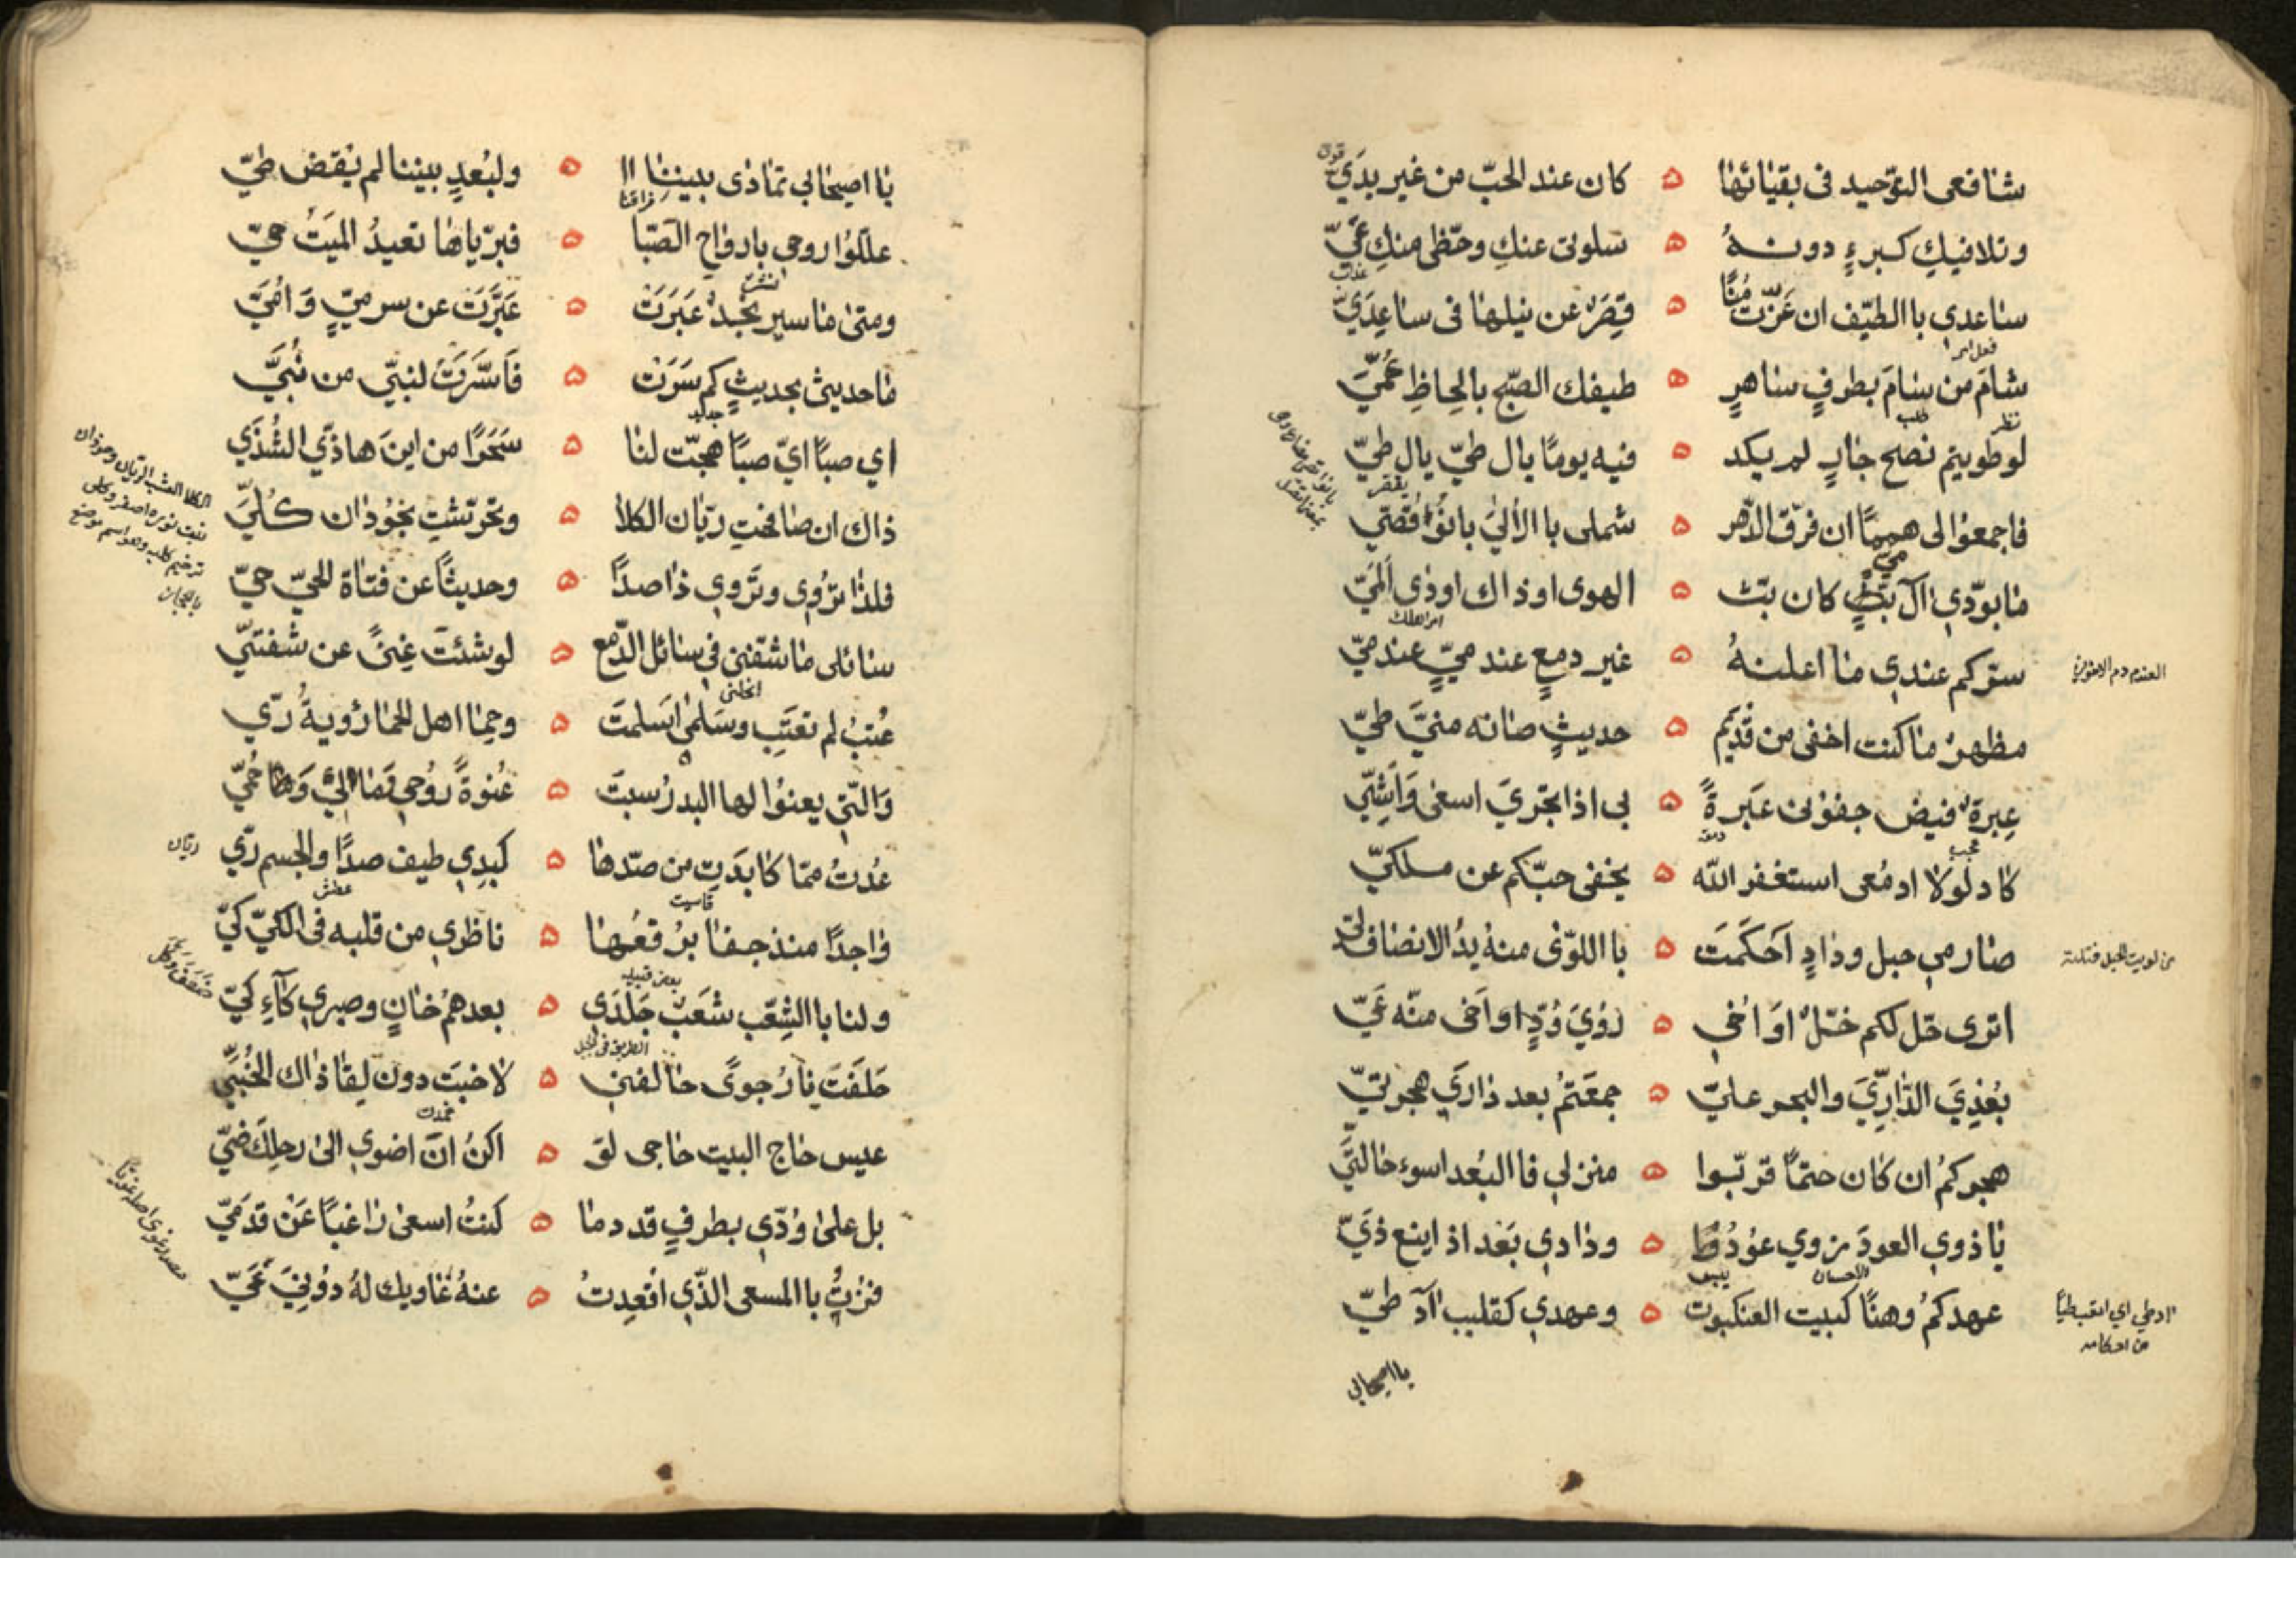 شافعي التوحيد في بقيائها ۵ كان عند الحبّ من غير يدَيّ
وتلافيكِ كبرءٍ دونهُ ۵ سلوتي عنكِ وحظّي منكِ عَيّ
ساعدي باالطيّف ان عَزّت مُنًا ۵ قِصَرٌ عن نيلها في ساعِدَيّ
شامَ من سامَ بطرفٍ ساهرٍ ۵ طيفك الصّبح بالحِاظِ عُمَيّ
لو طويتم نصح جارٍ لم يكد ۵ فيه يومًا يال طيّ يال طيّ
فاجمعوا لي همما ان فرّق الدّهر ۵ شملي با الأليٰ بانوُا قُصَيّ
ما بودّي آل ميّ كان بثّ ۵ الهوى اوذاك اوذى ألَمَيّ
سرّكم عندي ما اعلنهُ ۵ غير دمعٍ عندميٍّ عندميّ
مظهرٌ ما كنت اخفي من قديم ۵ حديثٍ صانه منيَّ طيّ
عِبرَةٌ فيض جفوني عَبرةً ۵ بي اذا تجريَ اسعى وَاشِيّ
كاد لولا ادمُعي استغفر الله ۵ يخفى حبّكم عن ملكيّ
صارمي حبل ودادٍ اَحكَمَت ۵ باللوّى منهُ يدُ الانصاف ليّ
اترى حل لكم حلّ اوَاخي ۵ رُؤيَ وُدٍّ اواَخي منّه عَيّ
بُعْدِيَ الدّارِيَّ والهجر عليّ ۵ جمعَتمُ بعد دارَي هجرتيّ
هجركمُ ان كان حتمًا قربّوا ۵ منزلي فا البُعد اسوء حالتَيّ
يا ذوي العودَ ذوي عوُدُ ۵ ودادي بَعْد اذ اينع ذَيّ
عهدكمُ وهنًا كبيت العنكبوت ۵ وعهدي كقليب اآدَ طيّ
قوي
عذب
فعل امر
نظر
طلب
يقفر
دمعة
عجب
يبس
العندم دم الاخوين
من لويت الحبل فتلته
اد طي اي
من احكامه
يا اصيحابي
يا اصيحابي تمادى بيننا ۵ ولبُعدٍ بيننا لم يُقضَ طيّ
علّلوُا روحي بارواح الصّبا ۵ فبرّياها تعيدُ الميَتُ حيّ
ومتى ما سير نجدٌ عَبَرَت ۵ عَبَّرَت عن سر ميّ وَ امُيَّ
ما حديثي بحديثٍ كم سَرَت ۵ فَاسَّرَت لنبيّ من نُبَيَّ
اي صبًا ايّ صبًا هجتِ لنا ۵ سَحَرًا من اينَ هاذيّ الشُذَي
ذاك ان صافحتِ ريّان الكلأ ۵ وتحرّشتِ بحَوُذان كُلَيَّ
فلذا تُروى وتَروي ذا صدًا ۵ وحديثًا عن فتاة الحيّ حيّ
سائلي ما شفّني في سائل الدّمع ۵ لو شئتَ غِنىً عن شفتيّ
عُتبُ لم تعتِب وسَلمٰى اسلمت ۵ وحِما اهل الحما رؤيةُ رَيّ
وَالتي يعنوُا لها البدرُ سبت ۵ عُنوةً روُحي وَمالي وَحُمَيّ
عُدتُ ممّا كابدَت من صدّها ۵ كبدِي طيف صدًا والجسم رَيّ
واجدًا منذ جفا برُقعُها ۵ ناظري من قلبه في الكيّ كيّ
ولنا باالشِعّب شعَبٌ جَلَدَي ۵ بعدهمُ خانٍ وصبري كآءِ كيّ
حلفَت نارُ جوىً حالفني ۵ لا خبَت دون لِقا ذاك الخُبَيِّ
عيس حاج البيت حاجي لو ۵ اكنُ انَ اضوي الى رحلكَ ضيّ
بل على وُدّي بطرفٍ قد دما ۵ كنتُ اسعى راغبًا عَنْ قدَمَيّ
فزتُ باالمسعى الذّي اُقعِدتُ ۵ عنهُ غاويك لهُ دوُنِيَ عَيّ
فراقنا
جديد
قاسيت
عطش
ريّان
بعض قبيلة
الطريق في الجبل
خمدت
ضعف وكلّ